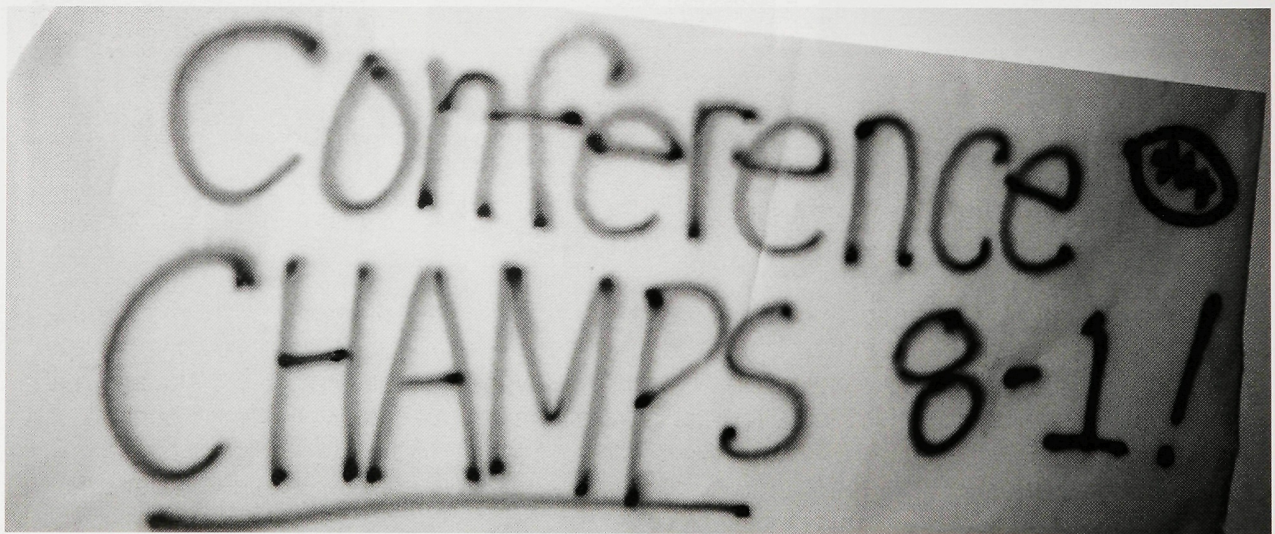 Conference
CHAMPS 8-1!